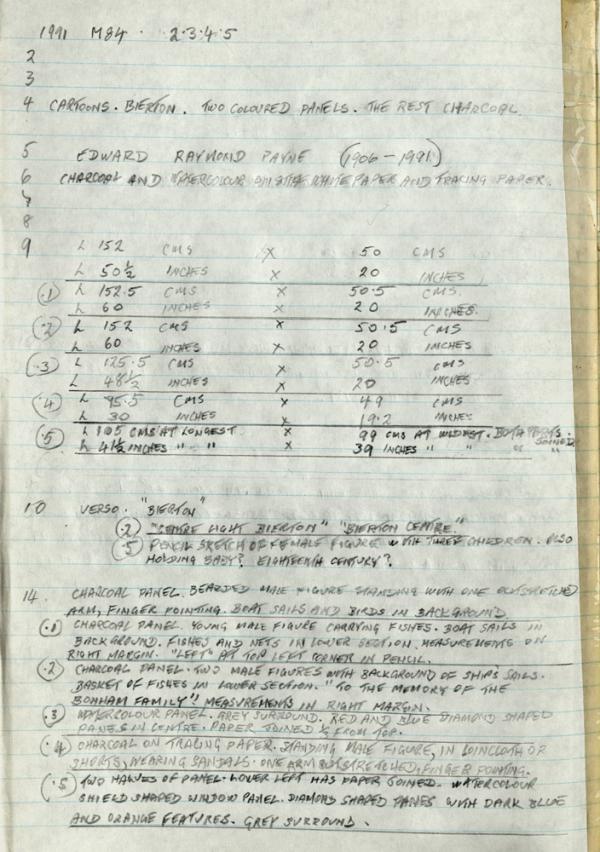 1991 M84 . 2.3.4.5
2
3
4 CARTOONS. BIERTON. TWO COLOURED PANELS. THE REST CHARCOAL.
5 EDWARD RAYMOND PAYNE (1906-1991)
6 CHARCOAL AND WATERCOLOUR ON WHITE PAPER AND TRACING PAPER.
7
8
9 L 152 CMS X 50 CMS
L 50½ INCHES X 20 INCHES
(.1) L 152.5 CMS X 50.5 CMS.
L 60 INCHES X 20 INCHES.
(.2) L 152 CMS X 50.5 CMS
L 60 INCHES X 20 INCHES
(.3) L 125.5 CMS X 50.5 CMS
L 48½ INCHES X 20 INCHES
(.4) L 95.5 CMS X 49 CMS
L 30 INCHES X 19.2 INCHES
(.5) L 105 CMS AT LONGEST X 99 CMS AT WIDEST. BOTH PARTS JOINED
L 41½ INCHES " " X 39 INCHES " " " "
10 VERSO. "BIERTON"
(.2) "CENTRE LIGHT BIERTON" "BIERTON CENTRE."
(.5) PENCIL SKETCH OF FEMALE FIGURE WITH THREE CHILDREN. ALSO
HOLDING BABY? EIGHTEENTH CENTURY?
14. CHARCOAL PANEL. BEARDED MALE FIGURE STANDING WITH ONE OUTSTRETCHED
ARM, FINGER POINTING. BOAT SAILS AND BIRDS IN BACKGROUND.
(.1) CHARCOAL PANEL. YOUNG MALE FIGURE CARRYING FISHES. BOAT SAILS IN
BACKGROUND. FISHES AND NETS IN LOWER SECTION. MEASUREMENTS ON
RIGHT MARGIN. "LEFT" AT TOP LEFT CORNER IN PENCIL.
(.2) CHARCOAL PANEL. TWO MALE FIGURES WITH BACKGROUND OF SHIPS SAILS.
BASKET OF FISHES IN LOWER SECTION. "TO THE MEMORY OF THE
BONHAM FAMILY"? MEASUREMENTS IN RIGHT MARGIN.
(.3) WATERCOLOUR PANEL. GREY SURROUND. RED AND BLUE DIAMOND SHAPED
PANES IN CENTRE. PAPER JOINED ⅓ FROM TOP.
(.4) CHARCOAL ON TRACING PAPER. STANDING MALE FIGURE, IN LOINCLOTH OR
SHORTS, WEARING SANDALS. ONE ARM OUTSTRETCHED, FINGER POINTING.
(.5) TWO HALVES OF PANEL. LOWER LEFT HAS PAPER JOINED. WATERCOLOUR
SHIELD SHAPED WINDOW PANEL. DIAMOND SHAPED PANES WITH DARK BLUE
AND ORANGE FEATURES. GREY SURROUND.